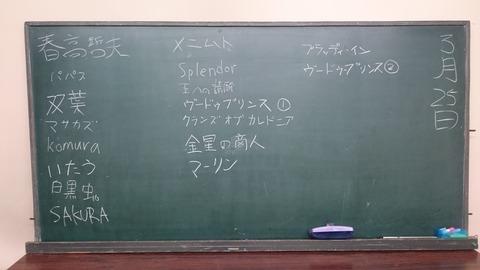 春高哲夫
パパス
双葉
マサカズ
komura
いたう
白黒虫16
SAKURA
メニムト
Splendor
王への請願
ヴードゥプリンス①
クランズオブカレドニア
金星の商人
マーリン
ブラッディ・イン
ヴードゥプリンス②
3月25日